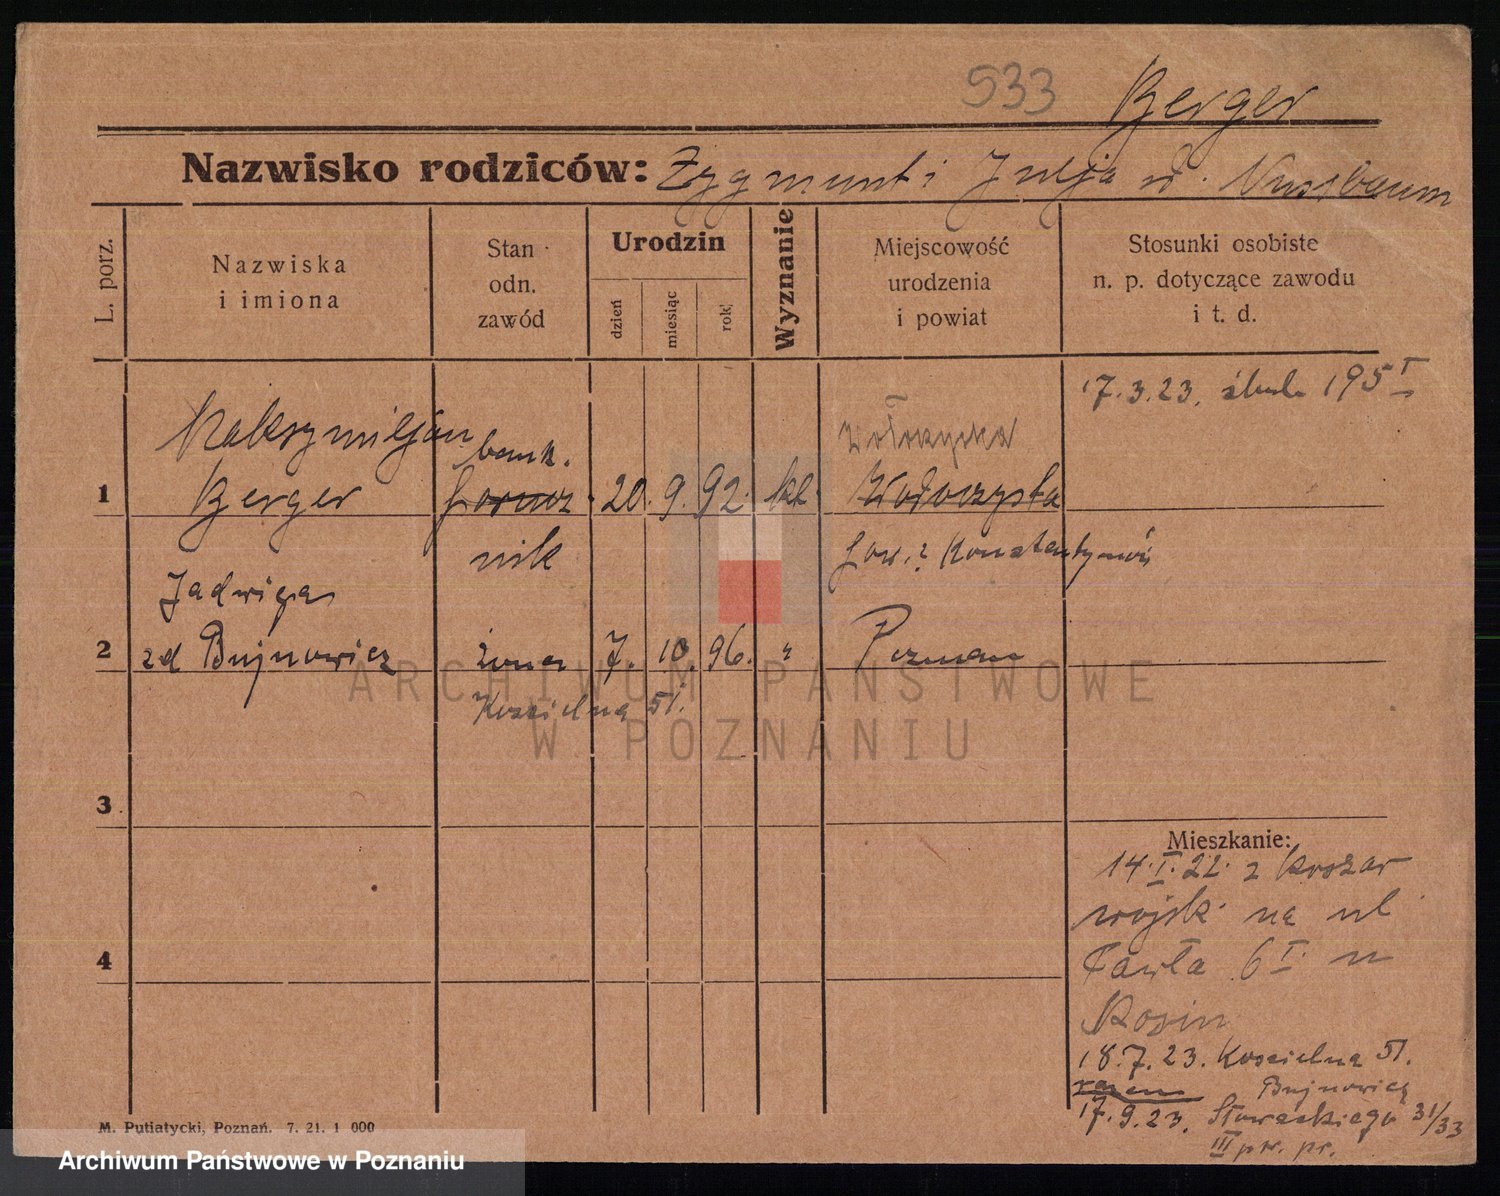 533 Berger
Nazwisko rodziców: Zygmunt i Julja ur. Nussbaum
L. porz.
Nazwiska
i imiona
Stan
odn.
zawód
Urodzin
dzień
miesiąc
rok
Wyznanie
Miejscowość
urodzenia
i powiat
Stosunki osobiste
n. p. dotyczące zawodu
i t. d.
17.3.23. 195 I
Maksymiljan
bank.
1 Berger 20. 9. 92. kt. Wołoczyska
nik
pow. Konstantynów
Jadwiga
2 zd Bujnowicz żona 7. 10. 96. " Poznan
Kościelna 51.
3
4
Mieszkanie:
14.I.22. z koszar
wojsk. na ul
Pawła 6 I. u
Rosin
18.7.23. Kościelna 51.
razem Bujnowicz
17.9.23. Słowackiego 31/33
III ptr. pr.
M. Putiatycki, Poznań. 7. 21. 1 000
ARCHIWUM PAŃSTWOWE
W POZNANIU
Archiwum Państwowe w Poznaniu